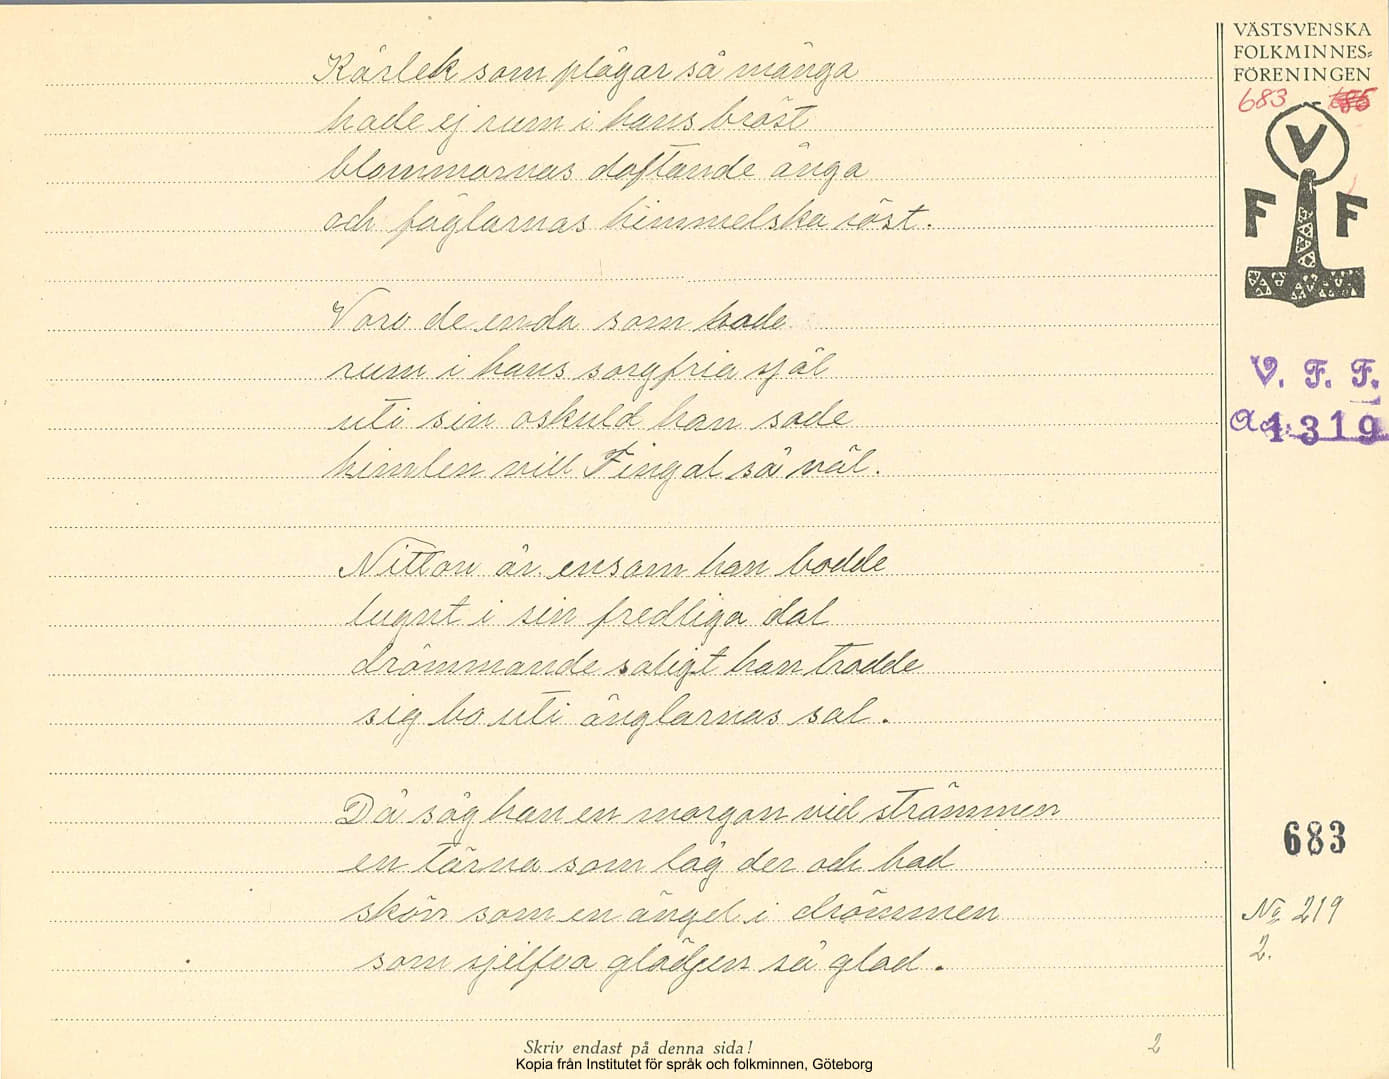 Kärlek som plågar så många
hade ej rum i hans bröst
blommornas doftande ånga
och fåglarnas himmelska röst.
Voro de enda som hade
rum i hans sorgfria själ
uti sin oskuld han sade
himlen vill Fingal så väl.
Nitton år ensam han bodde
lugnt i sin fredliga dal
drömmande saligt han trodde
sig bo uti änglarnas sal.
Då såg han en morgon vid strömmen
en tärna som låg der och bad
skön som en ängel i drömmen
som sjelfva glädjen så glad.
VÄSTSVENSKA
FOLKMINNES-
FÖRENINGEN
683
V
F F
V. F. F.
Acc. 1319
683
No 219
2.
Skriv endast på denna sida!
2
Kopia från Institutet för språk och folkminnen, Göteborg